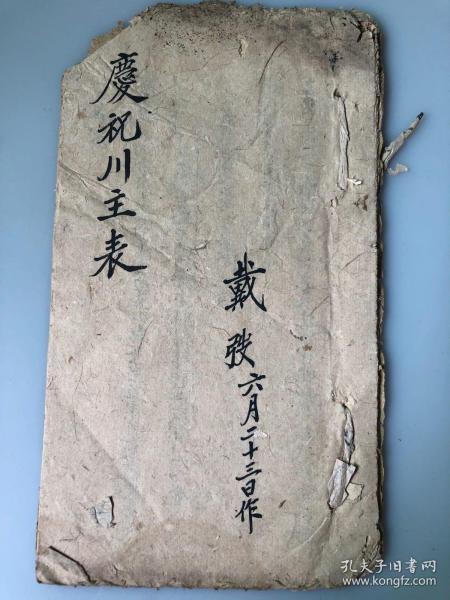 慶祝川主表
戴 六月二十三日作
孔夫子旧书网
www.kongfz.com